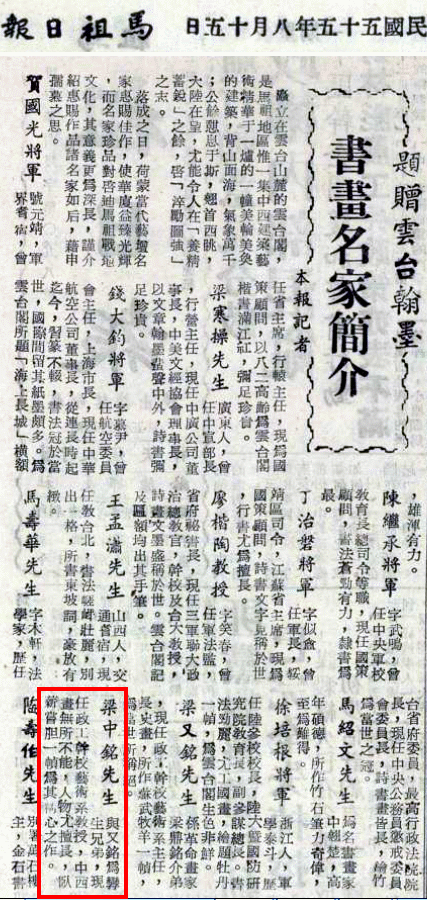 民國五十五年八月十五日 馬祖日報
題贈雲台翰墨
書畫名家簡介
本報記者
矗立在雲台山麓的雲台閣，
是馬祖地區惟一集中西建築藝
術精華于一爐的一幢美輪美奐
的建築，背山面海，氣象萬千
；公餘憩息于斯，翹首西眺，
大陸在望，尤能令人在「養精
蓄銳」之餘，啓「淬勵圖強」
之志。
落成之日，荷蒙當代藝壇名
家惠賜佳作，使華廈益臻光輝
，而名家珍品對啓廸馬祖戰地
文化，其意義更爲深長，謹介
紹惠賜作品諸名家如后，藉申
孺慕之思。
賀國光將軍 號元靖，軍
界耆宿，曾
任省主席，行轅主任，現爲國
策顧問，以八二高齡爲雲台閣
楷書滿江紅，彌足珍貴。
梁寒操先生 廣東人，曾
任中宣部長
，行營主任，現任中廣公司董
事長，中美文經協會理事長，
以文章翰墨蜚聲中外，詩書彌
足珍貴。
錢大鈞將軍 字慕尹，曾
任航空委員
會主任，上海市長，現任中華
航空公司董事長，從連長時起
迄今，習篆不輟，書法冠於當
世，國際間留其紙墨頗多。爲
雲台閣所題「海上長城」橫額
，雄渾有力。
陳繼承將軍 字武鳴，曾
任中央軍校
教育長總司令等職，現任國策
顧問，書法蒼勁有力，隸書爲
最。
丁治磐將軍 字似盦，曾
任軍長，綏
靖區司令，江蘇省主席，現爲
國策顧問，詩書文字見稱於世
，行書尤爲擅長。
廖楷陶教授 字笑春，曾
任軍法監，
省府秘書長，現任三軍聯大政
治總教官，幹校及台大教授，
詩書文墨盛稱於世。雲台閣記
及區額均出其手筆。
王孟瀟先生 山西人，交
通耆宿，現
任教台北，書法壯麗，別
出一格，所書東坡詞，豪放有
緻。
馬壽華先生 字木軒，法
學家，歷任
台省府委員，最高行政法院院
長，現任中央公務員懲戒委員
會委員長，詩書畫皆長，繪竹
爲當世之冠。
馬紹文先生 爲名書畫家
中翹楚，高
年碩德，所作竹石筆力奇偉，
至爲難得。
徐培根將軍 浙江人，軍
學泰斗，歷
任陸參校校長，陸大暨國防研
究院教育長，副參謀總長。書
法勁麗，尤工國畫，繪題牡丹
一幀，爲雲台閣生色非鮮。
梁又銘先生 係革命畫家
梁鼎銘介弟
，現任政工幹校藝術系主任，
長史畫，所作蘇武牧羊一幀，
爲當世所稱絕。
梁中銘先生 與又銘爲孿
生兄弟，現
任政工幹校藝術系教授，中西
畫無所不能，人物尤擅長，臥
薪嘗胆一幀爲其精心之作。
陶壽伯先生 別署萬石樓
主，金石書